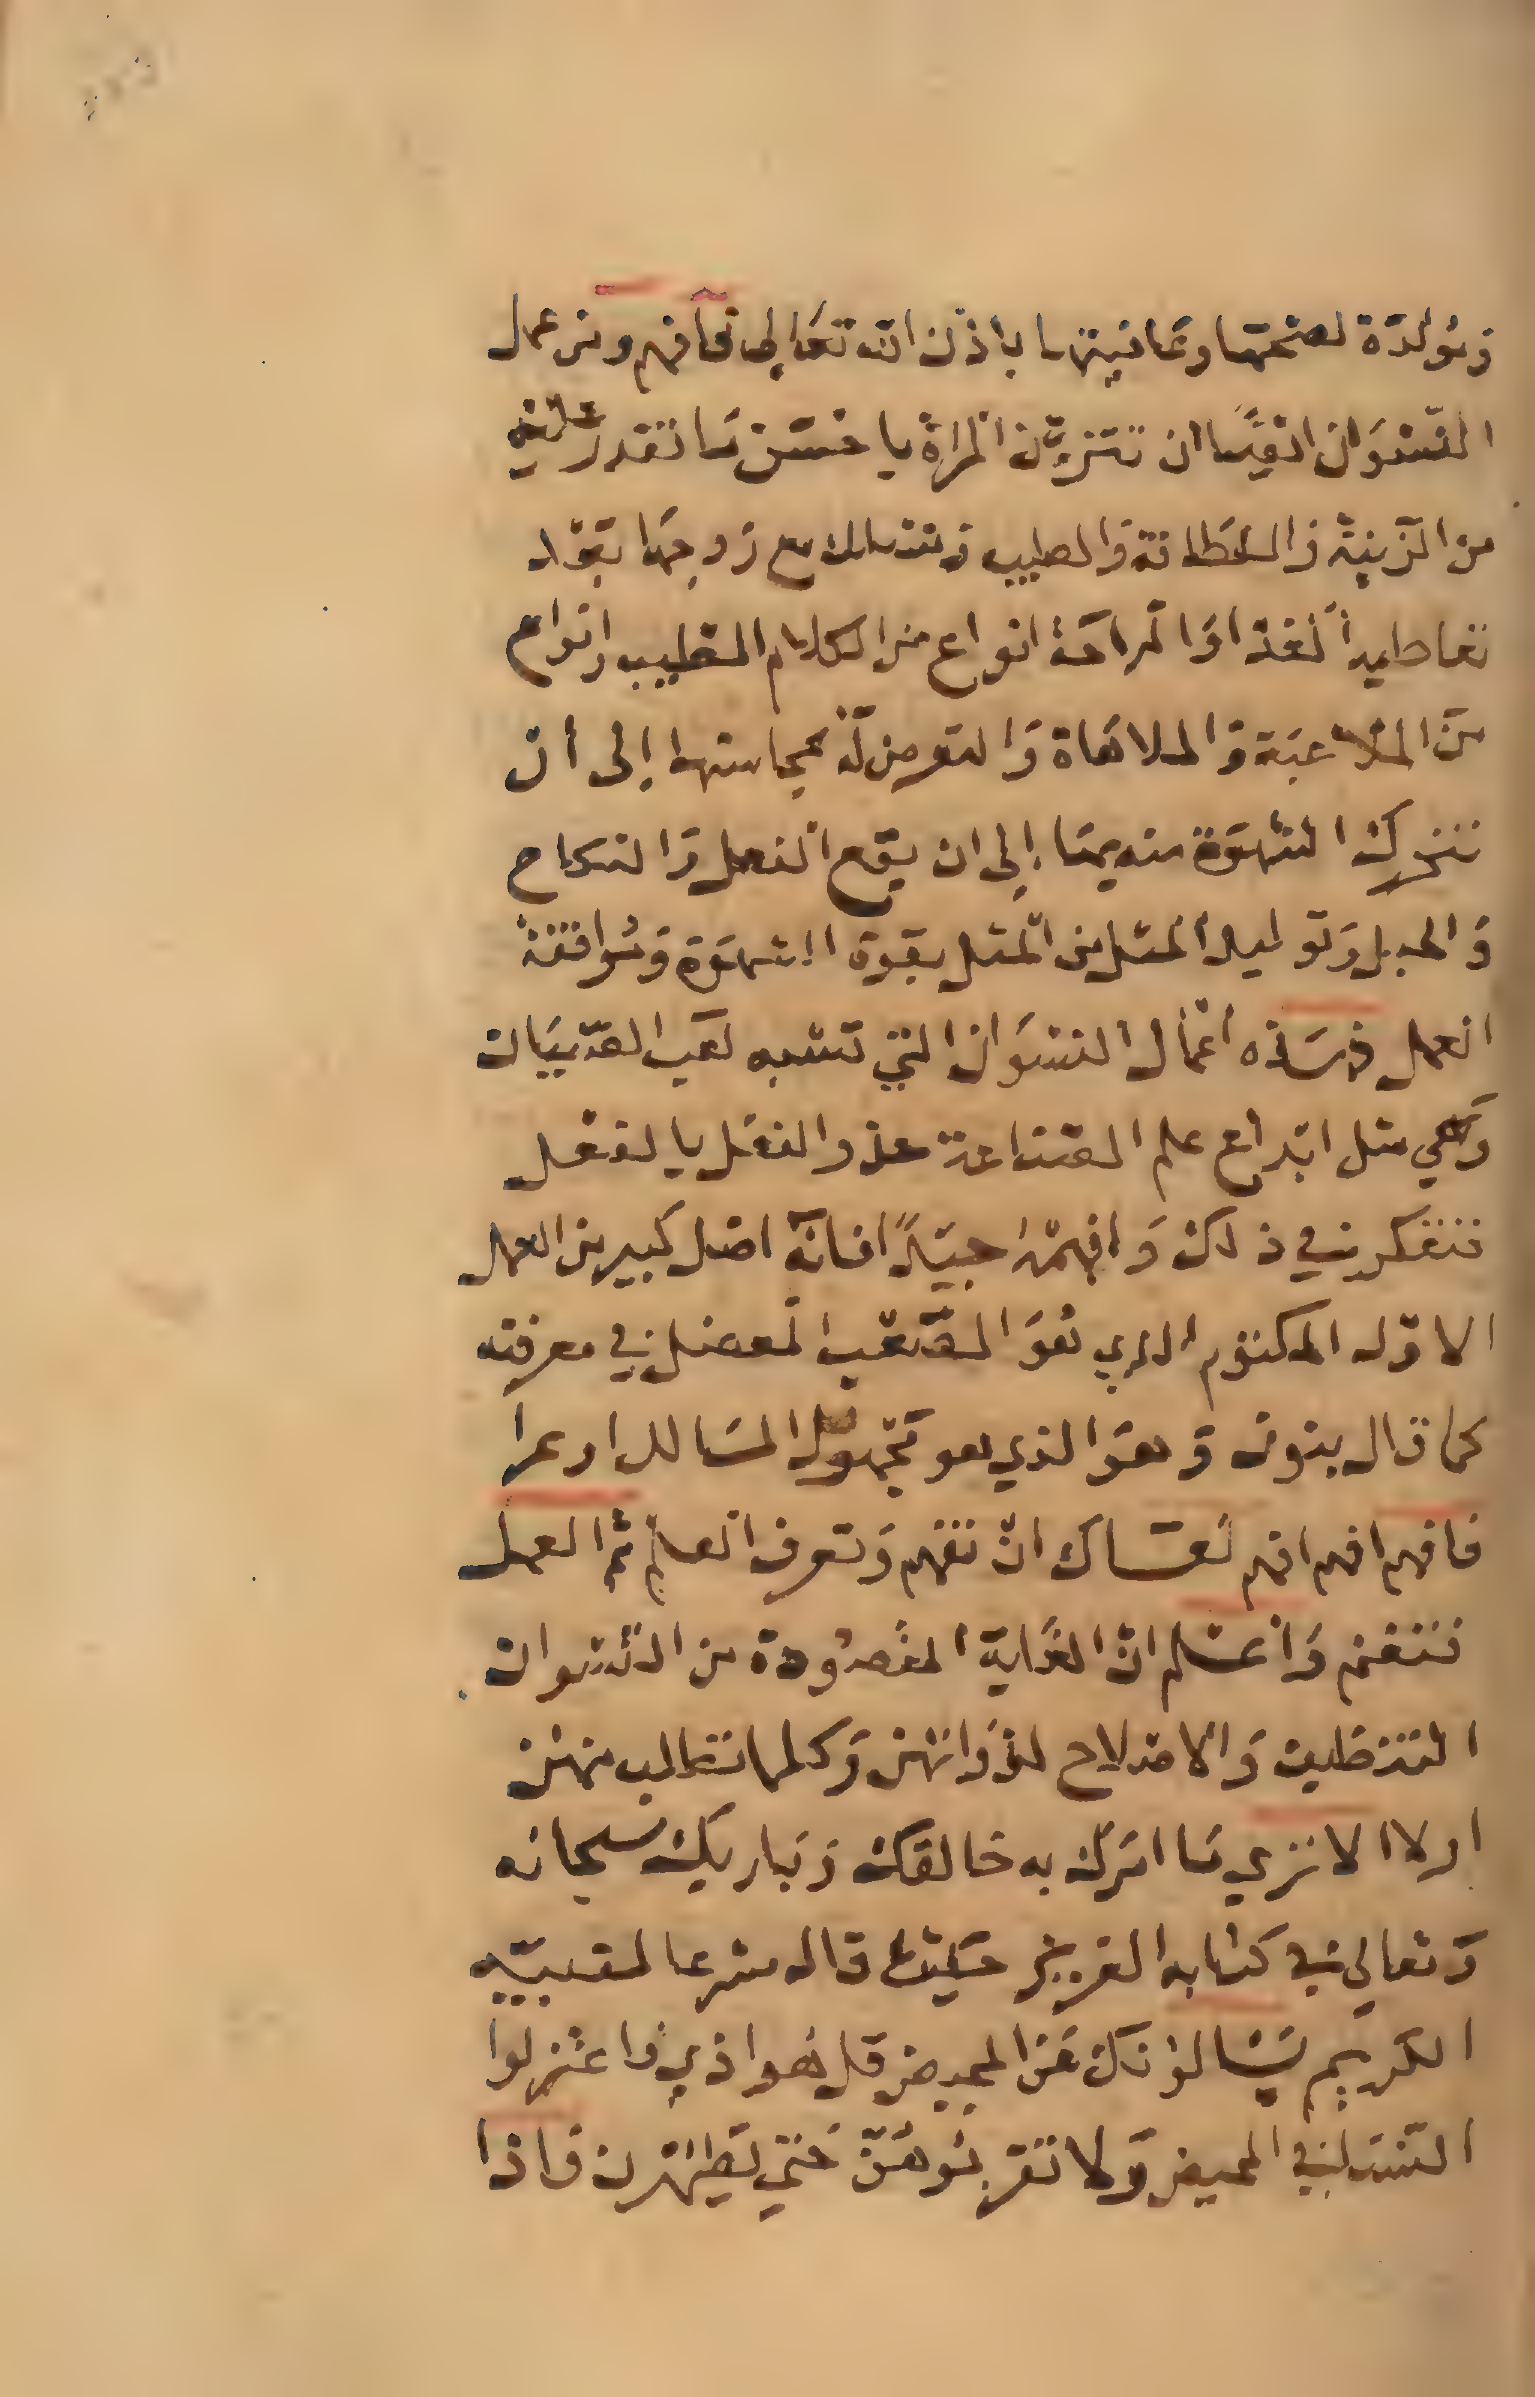 ومولدة لصحتها وعافيتها باذن الله تعالى فافهم ومن عمل
النسوان ايضًا ان تتزين المراة باحسن ما تقدر عليه
من الزينة والنظافة والطيب وتتملك مع زوجها بعد
تعاطيه الغذا والراحة انواع من الكلام الطيب وانواع
من الملاعبة والملاهاة والتعرض له بمحاسنها إلى أن
تتحرك الشهوة منهما إلى ان يقع الفعل والنكاح
والحبل وتوليد المثل من المثل بقوة الشهوة وموافقة
العمل فهذه اعمال النسوان التي تشبه لعب الصبيان
وهي مثل ابداع علم الصناعة حذو النعل بالنعل
فتفكر في ذلك وافهمه جيدًا فانه اصل كبير من العمل
الاول المكتوم الذي هو الصعب المعضل في معرفته
كما قال بنون وهو الذي هو مجهول المسالك وعرا
فافهم افهم افهم لعساك ان تفهم وتعرف العلم ثم العمل
فتغنم واعلم ان الغاية المقصودة من النسوان
التنظيف والاصلاح لذواتهن وكلما تطالب منهن
اولا الا ترى ما امرك به خالقك وباريك سبحانه
وتعالى في كتابه العزيز حيث قال مشرعا لنبيه
الكريم يسالونك عن المحيض قل هو اذي فاعتزلوا
النسا في المحيض ولا تقربوهن حتي يطهرن فاذا